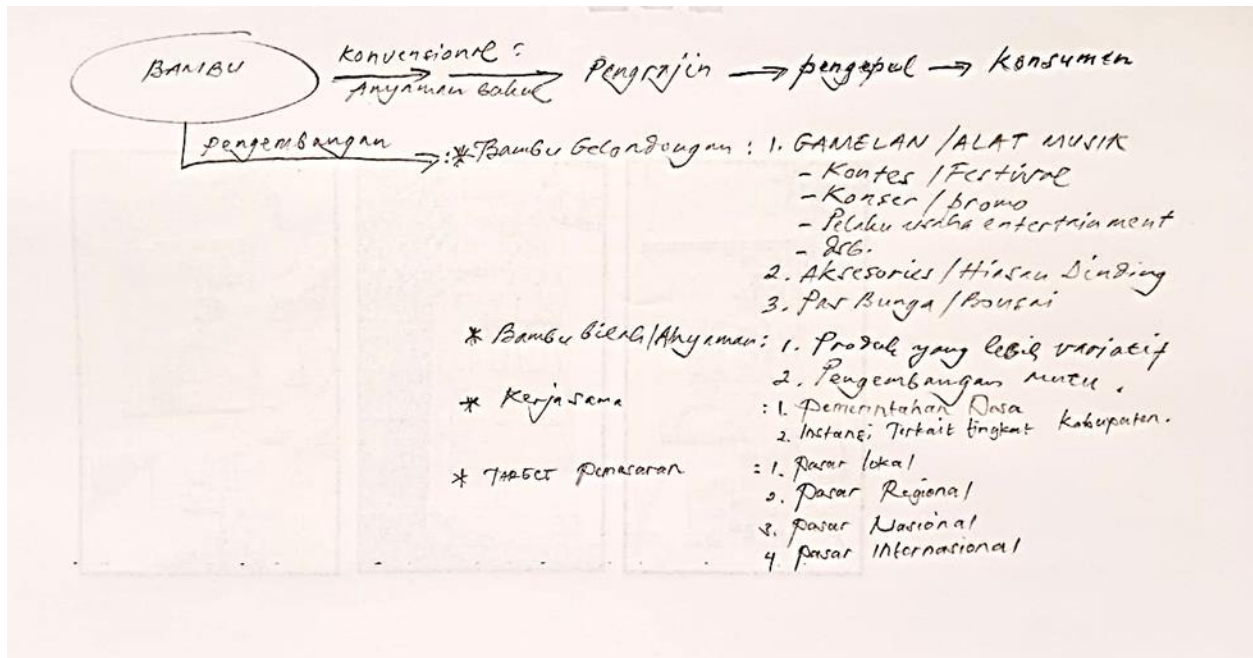 BAMBU
Konvensional :
Anyaman bakul
Pengrajin → pengepul → Konsumen
pengembangan
:* Bambu Gelondongan : 1. GAMELAN / ALAT MUSIK
- Kontes / Festival
- Konser / promo
- Pelaku usaha entertainment
- dsb.
2. Aksesories / Hiasan Dinding
3. Pas Bunga / Bonsai
* Bambu bilah / Anyaman : 1. Produk yang lebih variatif
2. Pengembangan mutu.
* Kerjasama : 1. Pemerintahan Desa
2. Instansi Terkait tingkat Kabupaten.
* TARGET Pemasaran : 1. Pasar lokal
2. Pasar Regional
3. Pasar Nasional
4 Pasar Internasional